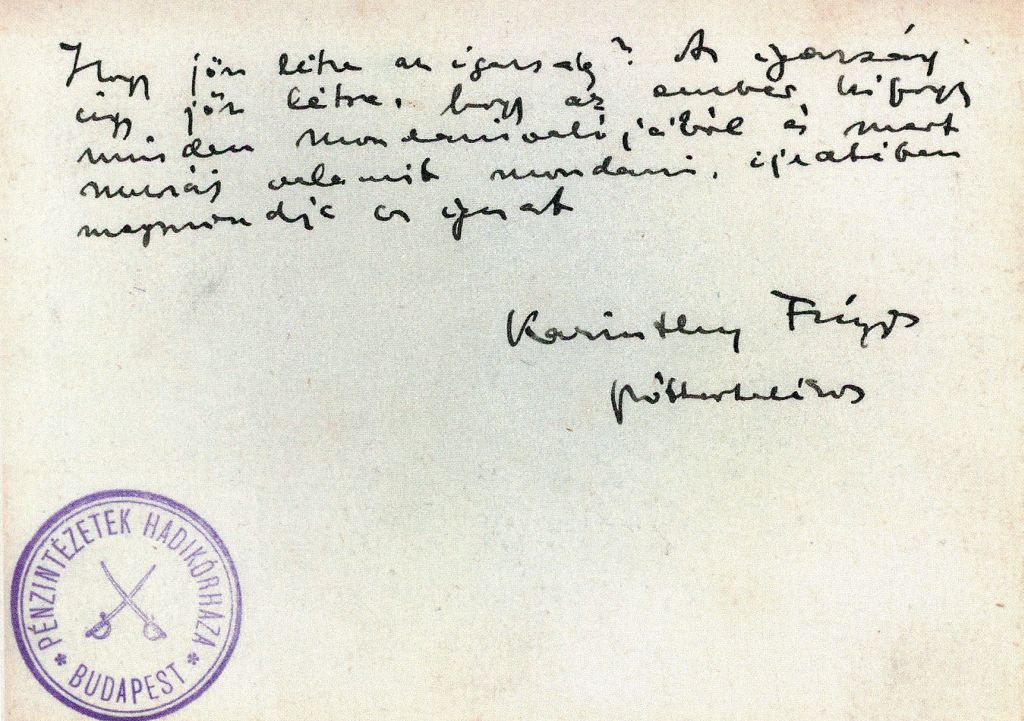 Hogy jön létre az igazság? Az igazság
úgy jön létre, hogy az ember kifogy
minden mondanivalójából és mert
muszáj valamit mondani, ijedtében
megmondja az igazat
Karinthy Frigyes
póttartalékos
PÉNZINTÉZETEK HADIKÓRHÁZA
* BUDAPEST *